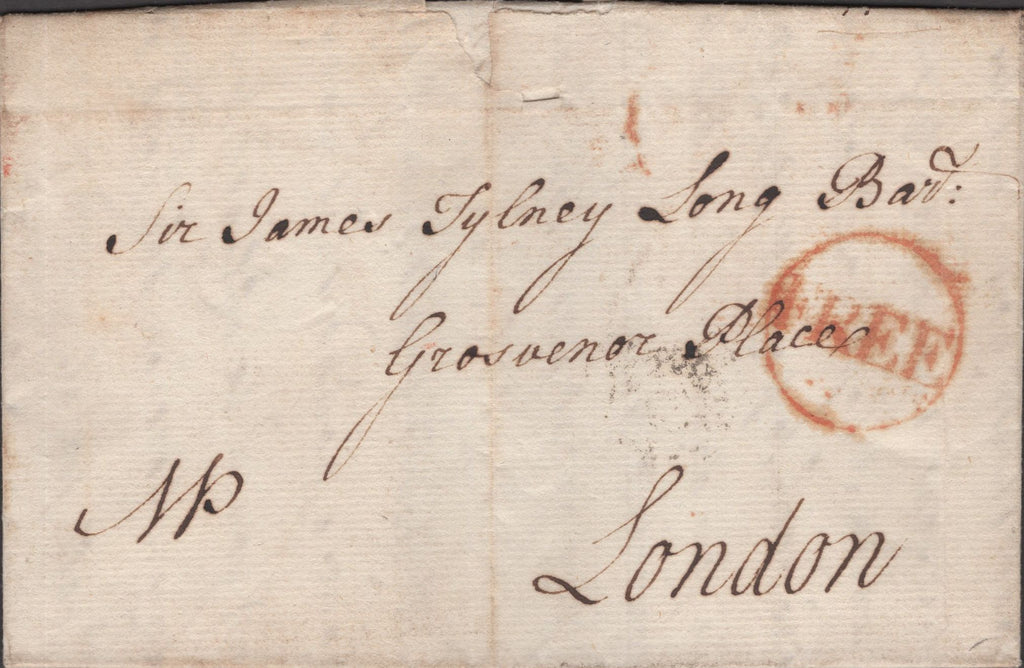 Sir James Tylney Long Bart:
Grosvenor Place
FREE
MP
London